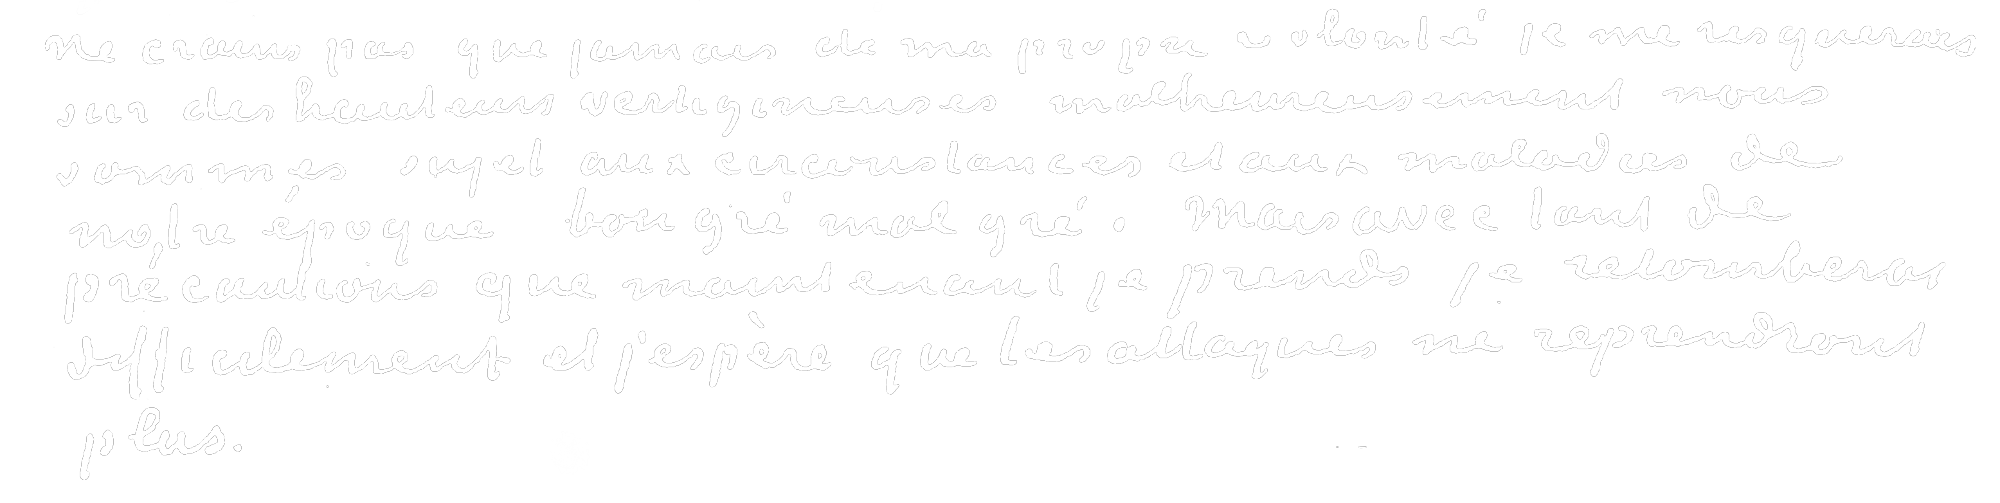 Ne crains pas que jamais de ma propre volonté je me resquerais
sur des hauteurs vertigineuses malheureusement nous
sommes sujet aux circonstances et aux maladies de
notre époque bon gré mal gré. Mais avec tant de
précautions que maintenant je prends je retomberai
difficilement et j'espère que les attaques ne reprendront
plus.